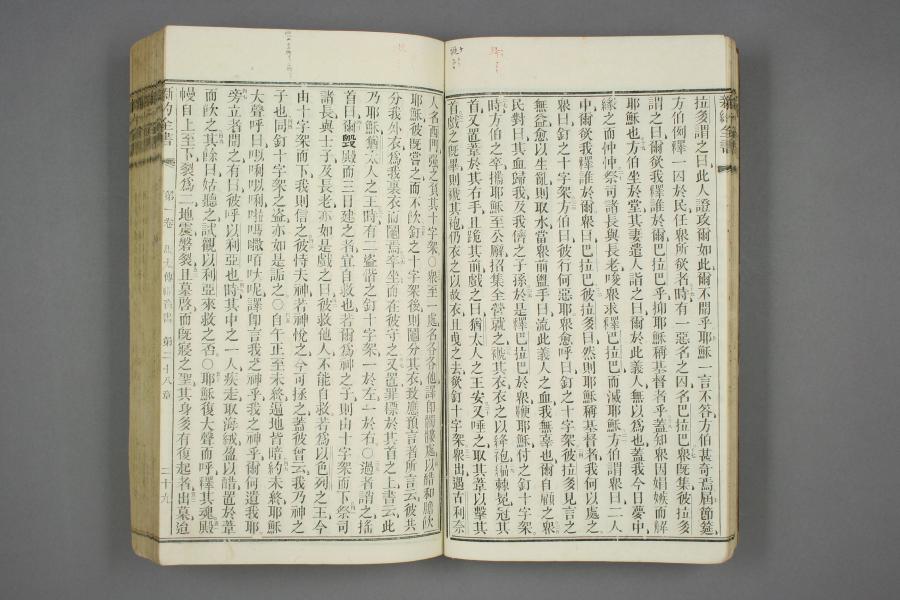 新約全書
拉多謂之曰此人證攻爾如此爾不聞乎耶穌一言不答方伯甚奇焉屆節筵
方伯例釋一囚於民任眾所欲者時有一惡名之囚名巴拉巴眾既集彼拉多
謂之曰爾欲我釋誰於爾巴拉巴乎抑耶穌稱基督者乎蓋知眾因娼嫉而解
耶穌也方伯坐於堂其妻遣人詣之曰爾於此義人無以為也蓋我今日夢中
緣之而忡忡祭司諸長與長老唆眾求釋巴拉巴而滅耶穌方伯謂眾曰二人
中爾欲我釋誰於爾眾曰巴拉巴彼拉多曰然則耶穌稱基督者我何以處之
眾曰釘之十字架方伯曰彼行何惡耶眾愈呼曰釘之十字架彼拉多見言之
無益愈以生亂則取水當眾前盥手曰流此義人之血我無辜也爾自顧之眾
民對曰其血歸我及我儕之子孫於是釋巴拉巴於眾鞭耶穌付之釘十字架
時方伯之卒攜耶穌至公廨招集全營就之褫其衣衣之以絳袍編棘冕冠其
首又置葦於其右手且跪其前戲之曰猶太人之王安又唾之取其葦以擊其
首戲之既畢則褫其袍仍衣之以故衣且曳之去欲釘十字架眾出遇古利奈
人名西門強之負其十字架〇眾至一處名各各他譯即髑髏處以醋和膽飲
耶穌彼既嘗之而不飲釘之十字架後則鬮分其衣致應預言者所言云彼共
分我外衣為我裏衣而鬮焉卒坐而在彼守之又置罪標於其首之上書云此
乃耶穌猶太人之王時有二盜偕之釘十字架一於左一於右〇過者誚之搖
首曰爾毀殿而三日建之者宜自救也若爾為神之子則由十字架而下祭司
諸長與士子及長老亦如是戲之曰彼救他人不能自救若為以色列之王今
由十字架而下我則信之彼恃夫神若神悅之今可拯之蓋彼曾云我乃神之
子也同釘十字架之盜亦如是詬之〇自午正至未終遍地皆暗約未終耶穌
大聲呼曰以利以利拉嗎撒
譯即言我之神乎我之神乎爾何遺我耶
旁立者聞之有曰彼呼以利亞也時其中之一人疾走取海絨盈以醋置於葦
而飲之其餘曰姑聽之試觀以利亞來救之否〇耶穌復大聲而呼釋其魂殿
幔自上至下裂為二地震磐裂且墓啓而既寢之聖其身多有復起者出墓迨
新約全書
第一卷
馬太傳福音書
第二十八章
二十九